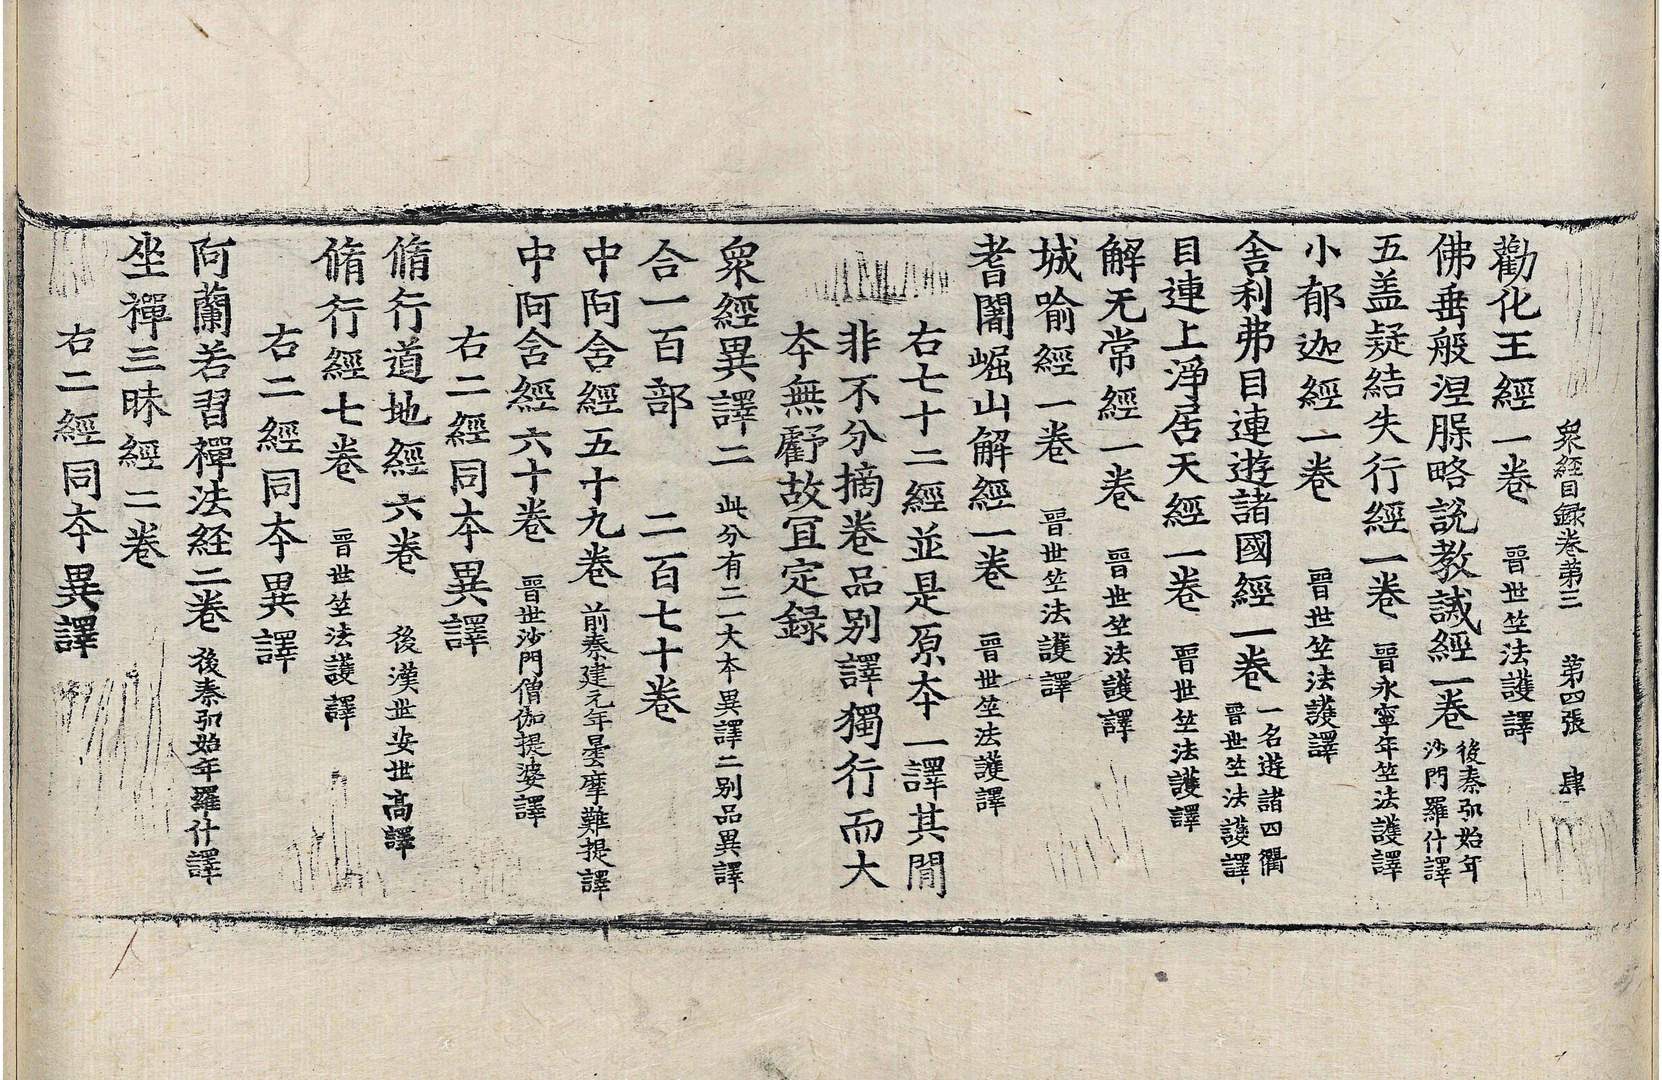 衆經目録卷第三　第四張　肆
勸化王經一卷　晉世竺法護譯
佛垂般涅脲略説教誡經一卷　後秦弘始年沙門羅什譯
五盖疑結失行經一卷　晉永寧年竺法護譯
小郁迦經一卷　晉世竺法護譯
舍利弗目連遊諸國經一卷　一名遊諸四衢晉世竺法護譯
目連上淨居天經一卷　晉世竺法護譯
解无常經一卷　晉世竺法護譯
城喻經一卷　晉世竺法護譯
耆闍崛山解經一卷　晉世竺法護譯
右七十二經並是原夲一譯其間
非不分摘卷品别譯獨行而大
夲無虧故冝定録
衆經異譯二　此分有二一大本異譯二别品異譯
合一百部　二百七十卷
中阿含經五十九卷　前秦建元年曇摩難提譯
中阿含經六十卷　晉世沙門僧伽提婆譯
右二經同夲異譯
脩行道地經六卷　後漢世安世高譯
脩行經七卷　晉世竺法護譯
右二經同夲異譯
阿蘭若習禪法経二卷　後秦弘始年羅什譯
坐禪三昧經二卷
右二經同夲異譯